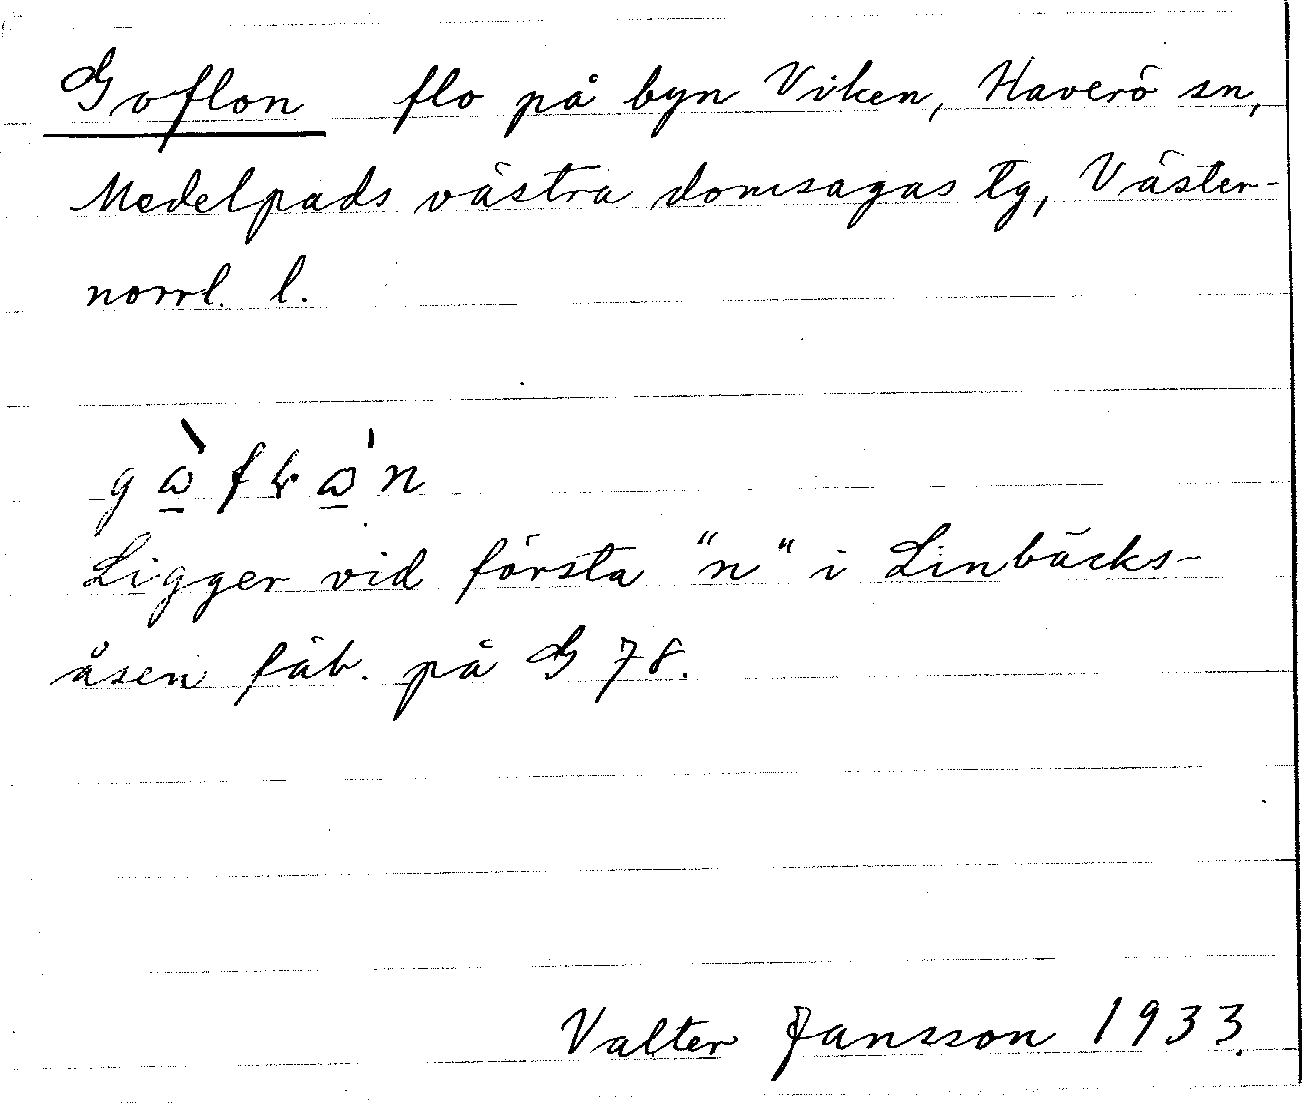 Goflon flo på byn Viken, Haverö sn,
Medelpads västra domsagas tg, Väster-
norrl. l.
Ligger vid första "n" i Linbäcks-
åsen fäb. på G 78.
Valter Jansson 1933.